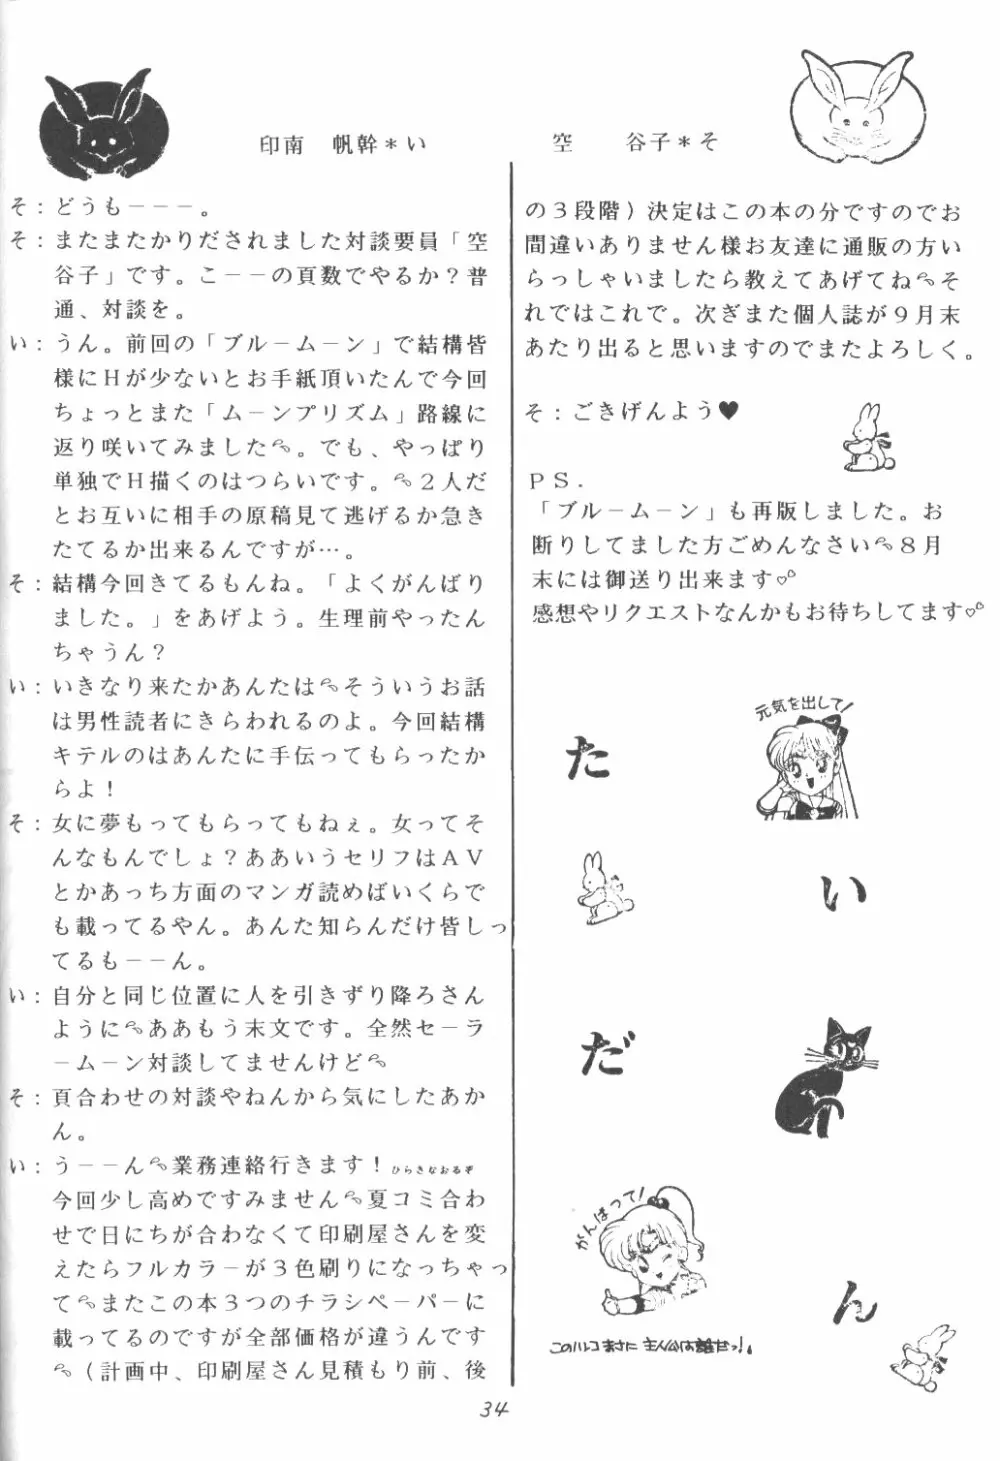 印南　帆幹＊い
空　　谷子＊そ
そ：どうも―――。
そ：またまたかりだされました対談要員「空
谷子」です。こ――の頁数でやるか？普
通、対談を。
い：うん。前回の「ブル―ム―ン」で結構皆
様にＨが少ないとお手紙頂いたんで今回
ちょっとまた「ム―ンプリズム」路線に
返り咲いてみました。でも、やっぱり
単独でＨ描くのはつらいです。２人だ
とお互いに相手の原稿見て逃げるか急き
たてるか出来るんですが…。
そ：結構今回きてるもんね。「よくがんばり
ました。」をあげよう。生理前やったん
ちゃうん？
い：いきなり来たかあんたはそういうお話
は男性読者にきらわれるのよ。今回結構
キテルのはあんたに手伝ってもらったか
らよ！
そ：女に夢もってもらってもねぇ。女ってそ
んなもんでしょ？ああいうセリフはＡＶ
とかあっち方面のマンガ読めばいくらで
も載ってるやん。あんた知らんだけ皆しっ
てるも――ん。
い：自分と同じ位置に人を引きずり降ろさん
ようにああもう末文です。全然セ―ラ
―ム―ン対談してませんけど
そ：頁合わせの対談やねんから気にしたあか
ん。
い：う――ん業務連絡行きます！ひらきなおるぞ
今回少し高めですみません夏コミ合わ
せで日にちが合わなくて印刷屋さんを変
えたらフルカラ―が３色刷りになっちゃっ
てまたこの本３つのチラシペ―パ―に
載ってるのですが全部価格が違うんです
（計画中、印刷屋さん見積もり前、後
の３段階）決定はこの本の分ですのでお
間違いありません様お友達に通販の方い
らっしゃいましたら教えてあげてねそ
れではこれで。次ぎまた個人誌が９月末
あたり出ると思いますのでまたよろしく。
そ：ごきげんよう♥
ＰＳ．
「ブル―ム―ン」も再版しました。お
断りしてました方ごめんなさい８月
末には御送り出来ます♡
感想やリクエストなんかもお待ちしてます♡
元気を出して！
た
い
だ
がんばって！
ん
このハンコまさに主人公は誰だっ！
34